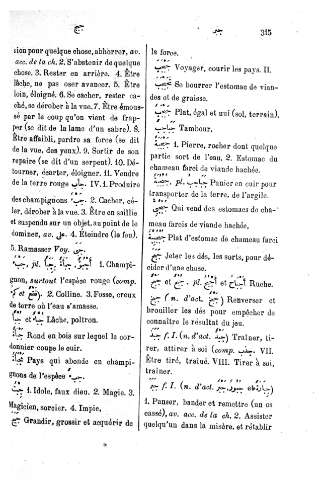 جبر 315
sion pour quelque chose, abhorrer, av.
acc. de la ch. 2. S'abstenir de quelque
chose. 3. Rester en arrière. 4. Être
lâche, ne pas oser avancer. 5. Être
loin, éloigné. 6. Se cacher, rester ca-
ché, se dérober à la vue. 7. Être émous-
sé par le coup qu'on vient de frap-
per (se dit de la lame d'un sabre). 8.
Être affaibli, perdre sa force (se dit
de la vue, des yeux). 9. Sortir de son
repaire (se dit d'un serpent). 10. Dé-
tourner, écarter, éloigner. 11. Vendre
de la terre rouge IV. 1. Produire
des champignons 2. Cacher, cé-
ler, dérober à la vue. 3. Être en saillie
et suspendu sur un objet, au point de le
dominer, av. على 4. Éteindre (la feu).
5. Ramasser Voy.
pl. 1. Champi-
gnon, surtout l'espèce rouge (comp.
et 2. Colline. 3. Fosse, creux
de terre où l'eau s'amasse.
et Lâche, poltron.
Rond en bois sur lequel le cor-
donnier coupe le cuir.
Pays qui abonde en champi-
gnons de l'espèce
1. Idole, faux dieu. 2. Magie. 3.
Magicien, sorcier. 4. Impie,
Grandir, grossir et acquérir de
la force.
Voyager, courir les pays. II.
Se bourrer l'estomac de vian-
des et de graisse.
Plat, égal et uni (sol, terrain).
Tambour.
1. Pierre, rocher dont quelque
partie sort de l'eau. 2. Estomac du
chameau farci de viande hachée.
pl. Panier en cuir pour
transporter de la terre, de l'argile.
Qui vend des estomacs de cha-
meau farcis de viande hachée.
Plat d'estomac de chameau farci
Jeter les dés, les sorts, pour dé-
cider d'une chose.
et pl. et Ruche.
(n. d'act. ) Renverser et
brouiller les dés pour empêcher de
connaître le résultat du jeu.
f. I. (n. d'act. ) Traîner, ti-
rer, attirer à soi (comp. VII.
Être tiré, traîné. VIII. Tirer à soi,
traîner.
f. I (n. d'act.
1. Panser, bander et remettre (un os
cassé), av. acc. de la ch. 2. Assister
quelqu'un dans la misère, et rétablir